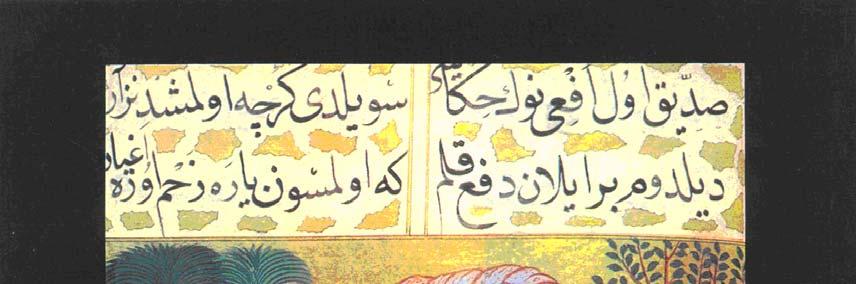 صدّيق اول افعی نوك حكا سويلدی كرچه اولمشدِ نزار
ديلدوم بر ايلان دفع قلم كه اولمسون ياره زخم اوزه اغيار